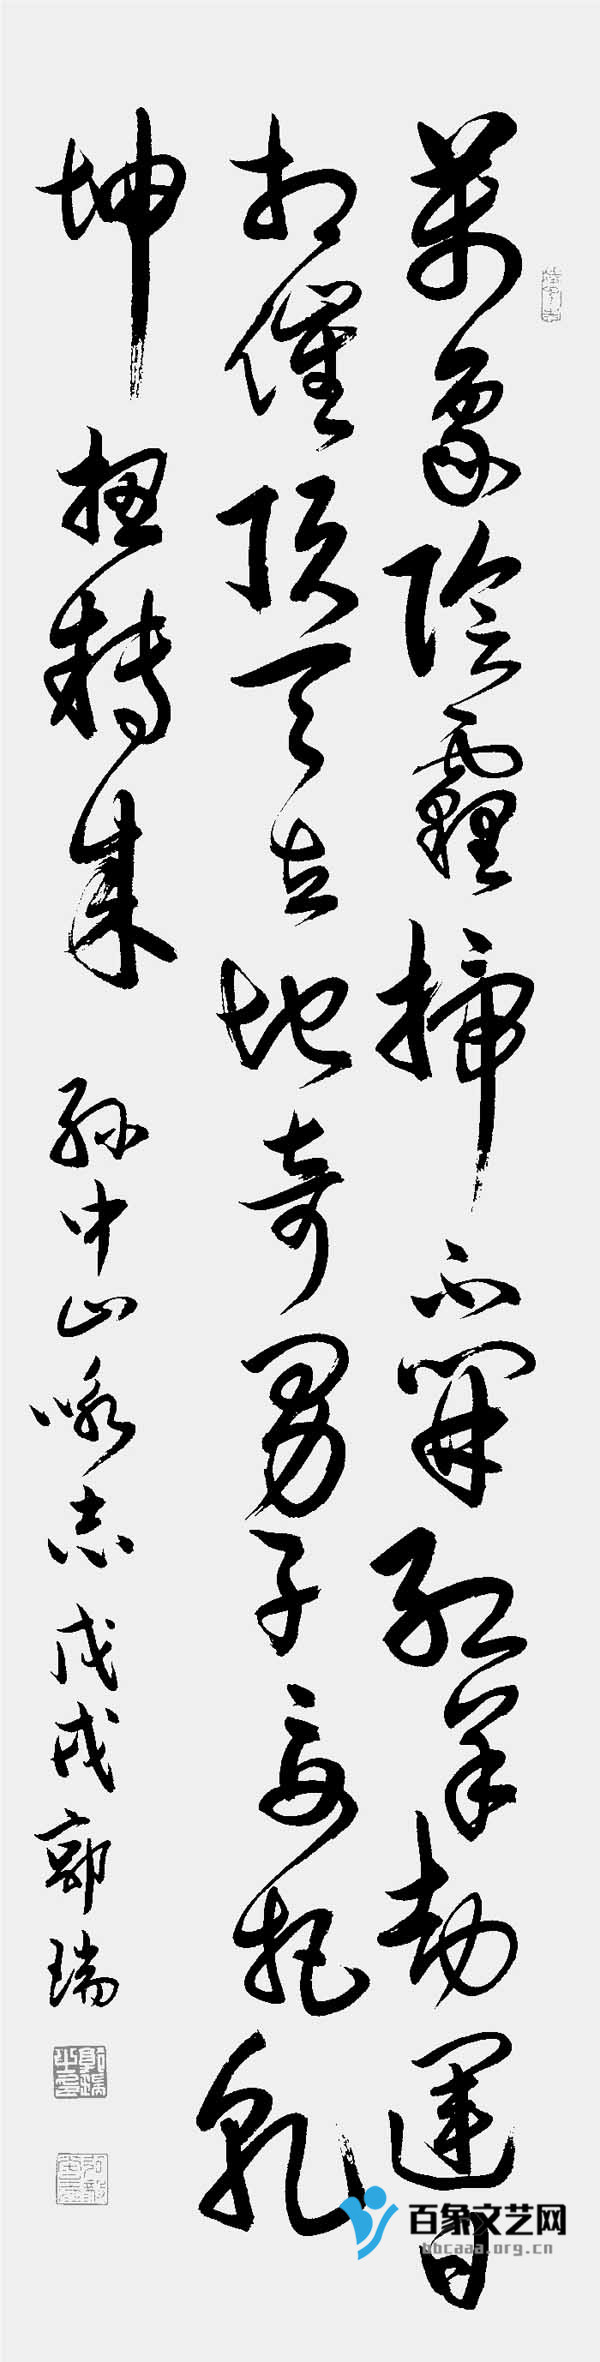 萬象陰霾掃不開紅羊劫運日
相催頂天立地奇男子要把乾
坤扭轉來 孫中山咏志戊戌郭瑞
百象文艺网
bbcaaa.org.cn